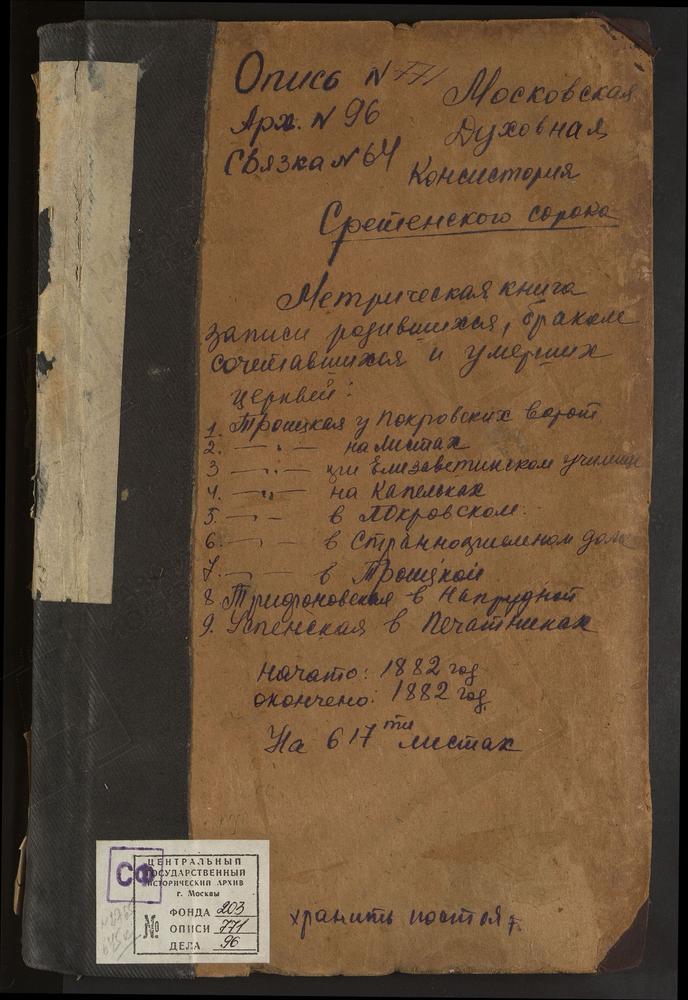 Опись N 771
Арх. N 96
Связка N 64
Московская
Духовная
Консистория
Сретенского сорока
Метрическая книга
записи родившихся, браком
сочетавшихся и умерших
церквей:
1. Троицкая у Покровских ворот
2. — " — на листах
3 — " — при Елизаветинском училище
4. — " — на Капельках
5. — " — в Покровском.
6. — " — в Странноприимном доме
7. — " — в Троицкой
8 Трифоновская в Напрудной
9. Успенская в Печатниках
Начато: 1882 год
окончено: 1882 год
На 617ти листах
хранить постоя
СФ
ЦЕНТРАЛЬНЫЙ
ГОСУДАРСТВЕННЫЙ
ИСТОРИЧЕСКИЙ АРХИВ
г. Москвы
ФОНДА 203
№ ОПИСИ 771
ДЕЛА 96